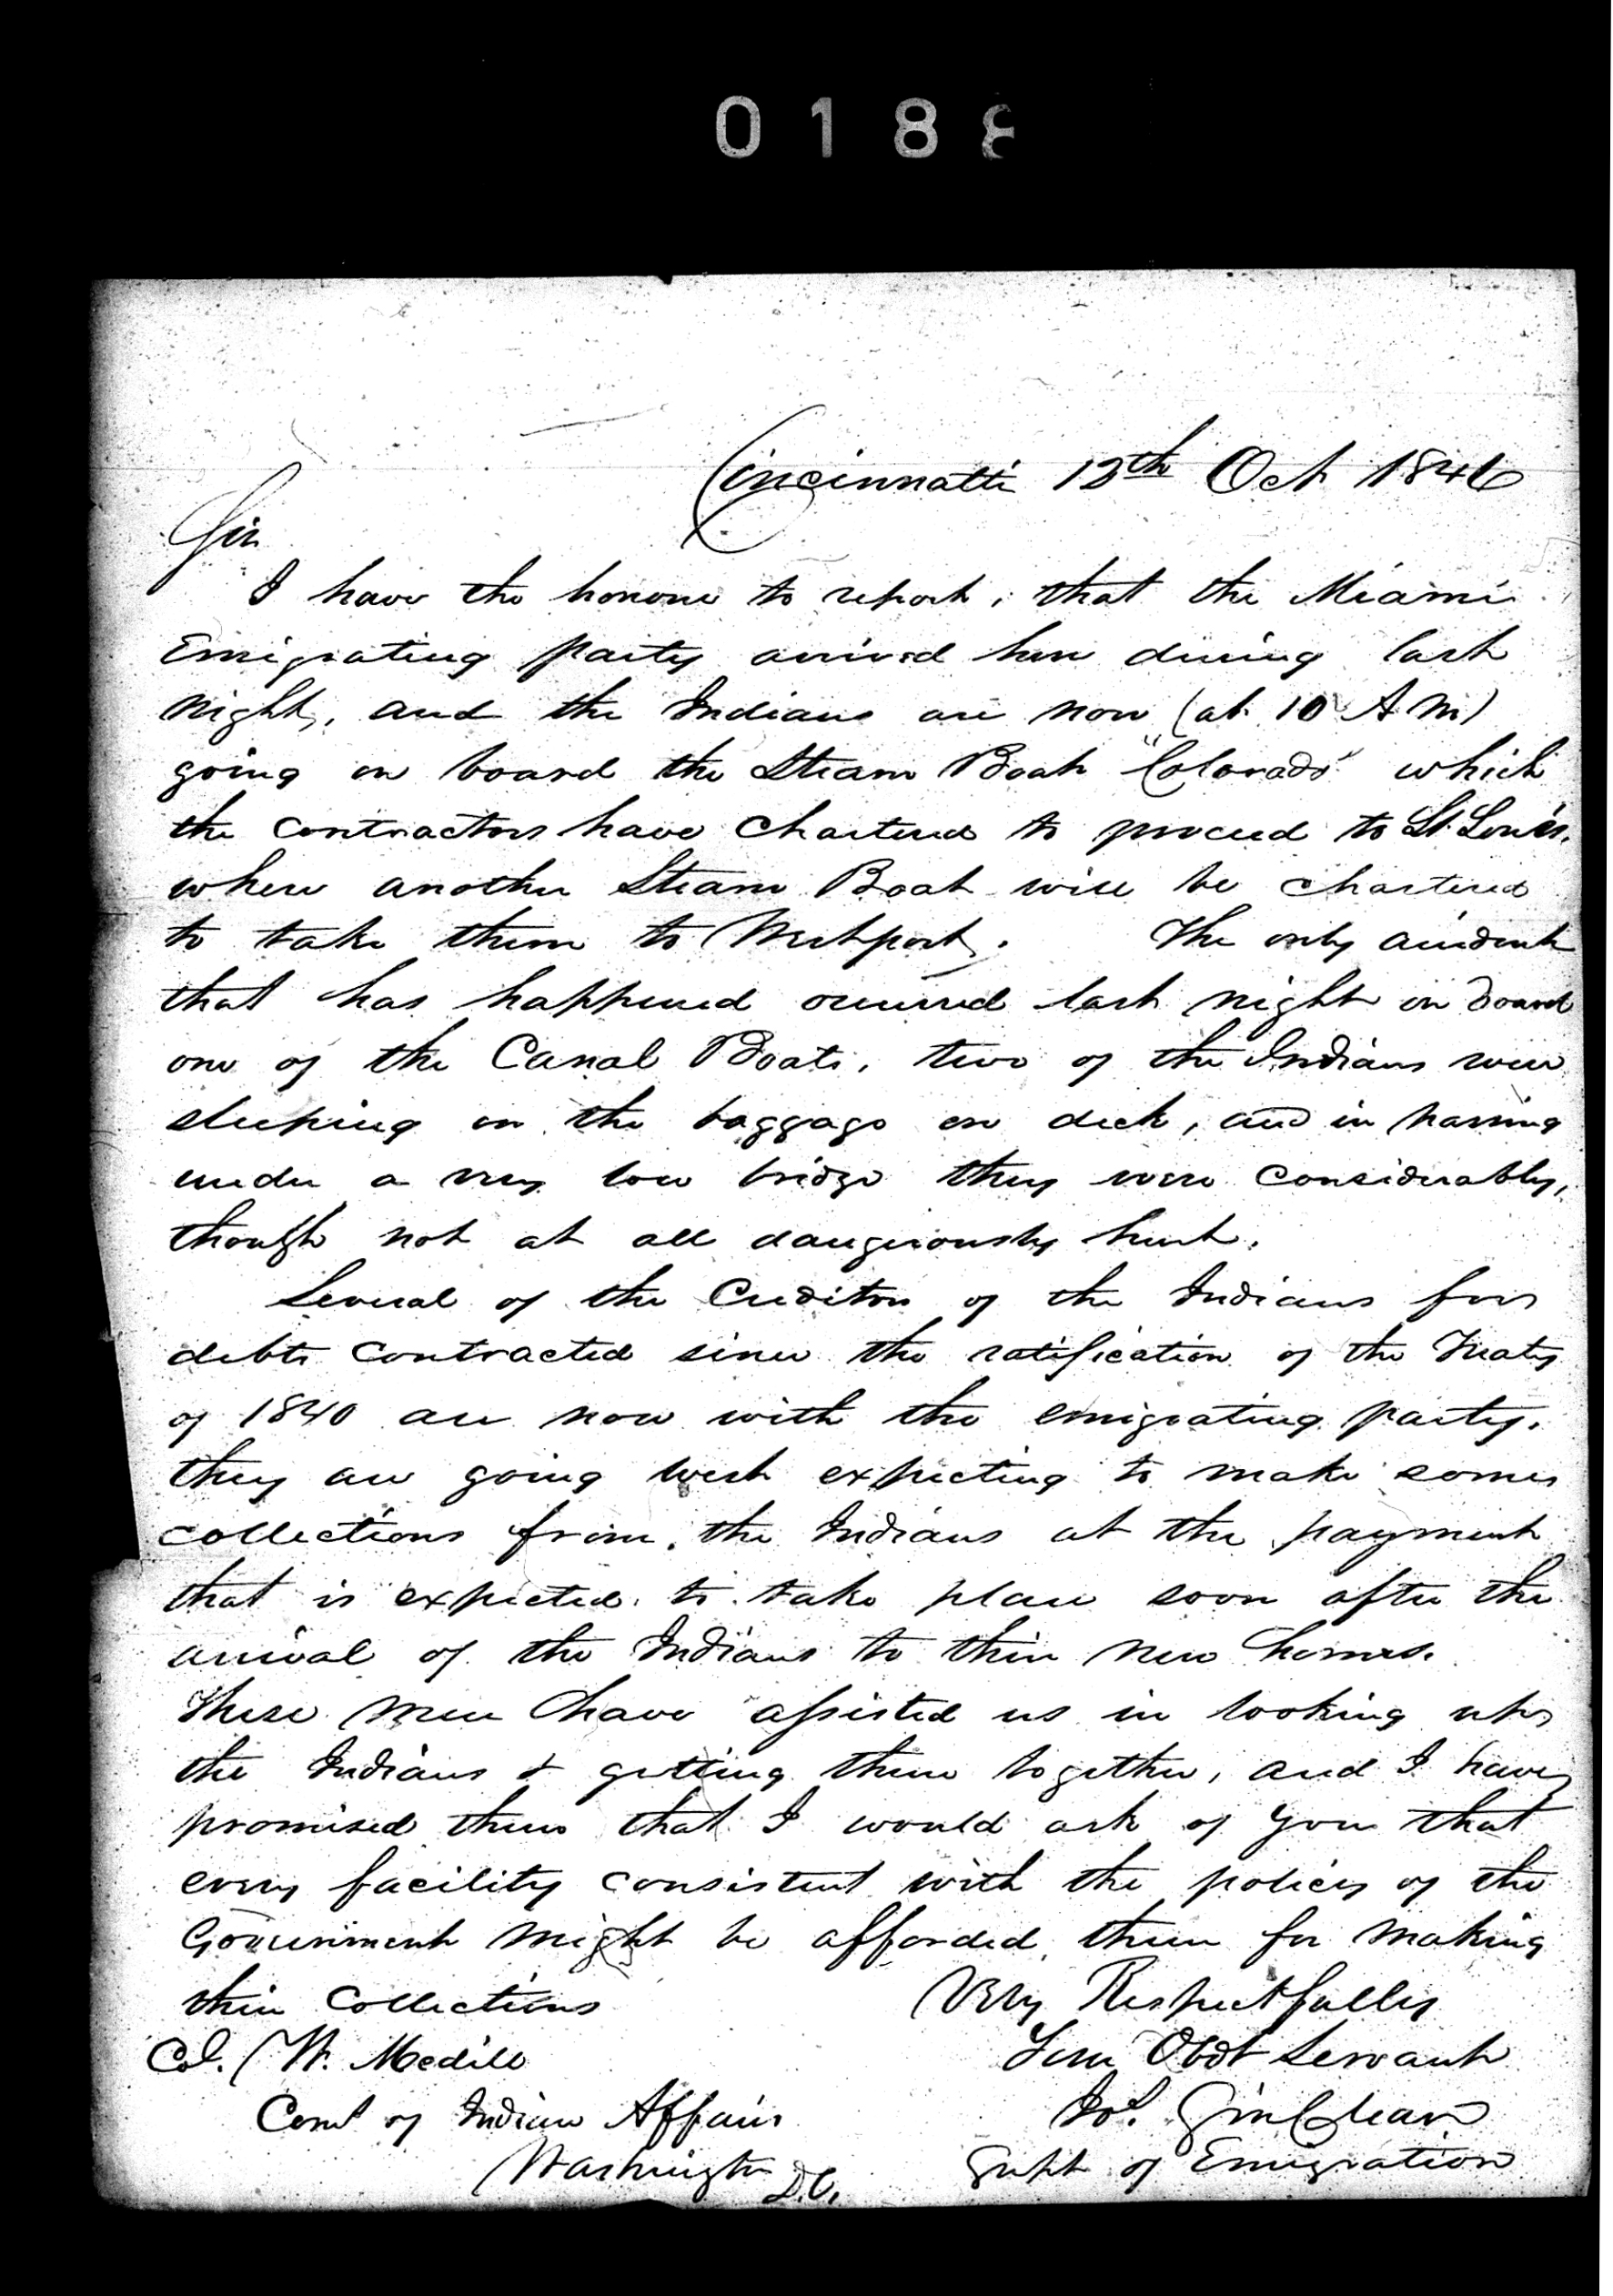 0188
Cincinnatti 12th Oct 1846
Sir
I have the honour to report, that the Miami
Emigrating party arrived here during last
night, and the Indians are now (at 10 A M)
going on board the Steam Boat "Colorado" which
the contractors have chartered to proceed to St Louis,
where another Steam Boat will be chartered
to take them to Westport. The only accident
that has happened occurred last night on board
one of the Canal Boats, two of the Indians were
sleeping on the baggage on deck, and in passing
under a very low bridge they were considerably,
though not at all dangerously hurt.
Several of the Creditors of the Indians for
debts contracted since the ratification of the Treaty
of 1840 are now with the emigrating party,
they are going west expecting to make some
collections from the Indians at the payment
that is expected to take place soon after the
arrival of the Indians to their new homes.
These men have assisted us in looking up
the Indians & getting them together, and I have
promised them that I would ask of you that
every facility consistent with the policy of the
Government might be afforded them for making
their collections Very Respectfully
Col. W. Medill Your Obdt Servant
Comr of Indian Affairs Jos. Sinclear
Washington D.C. Supt of Emigration